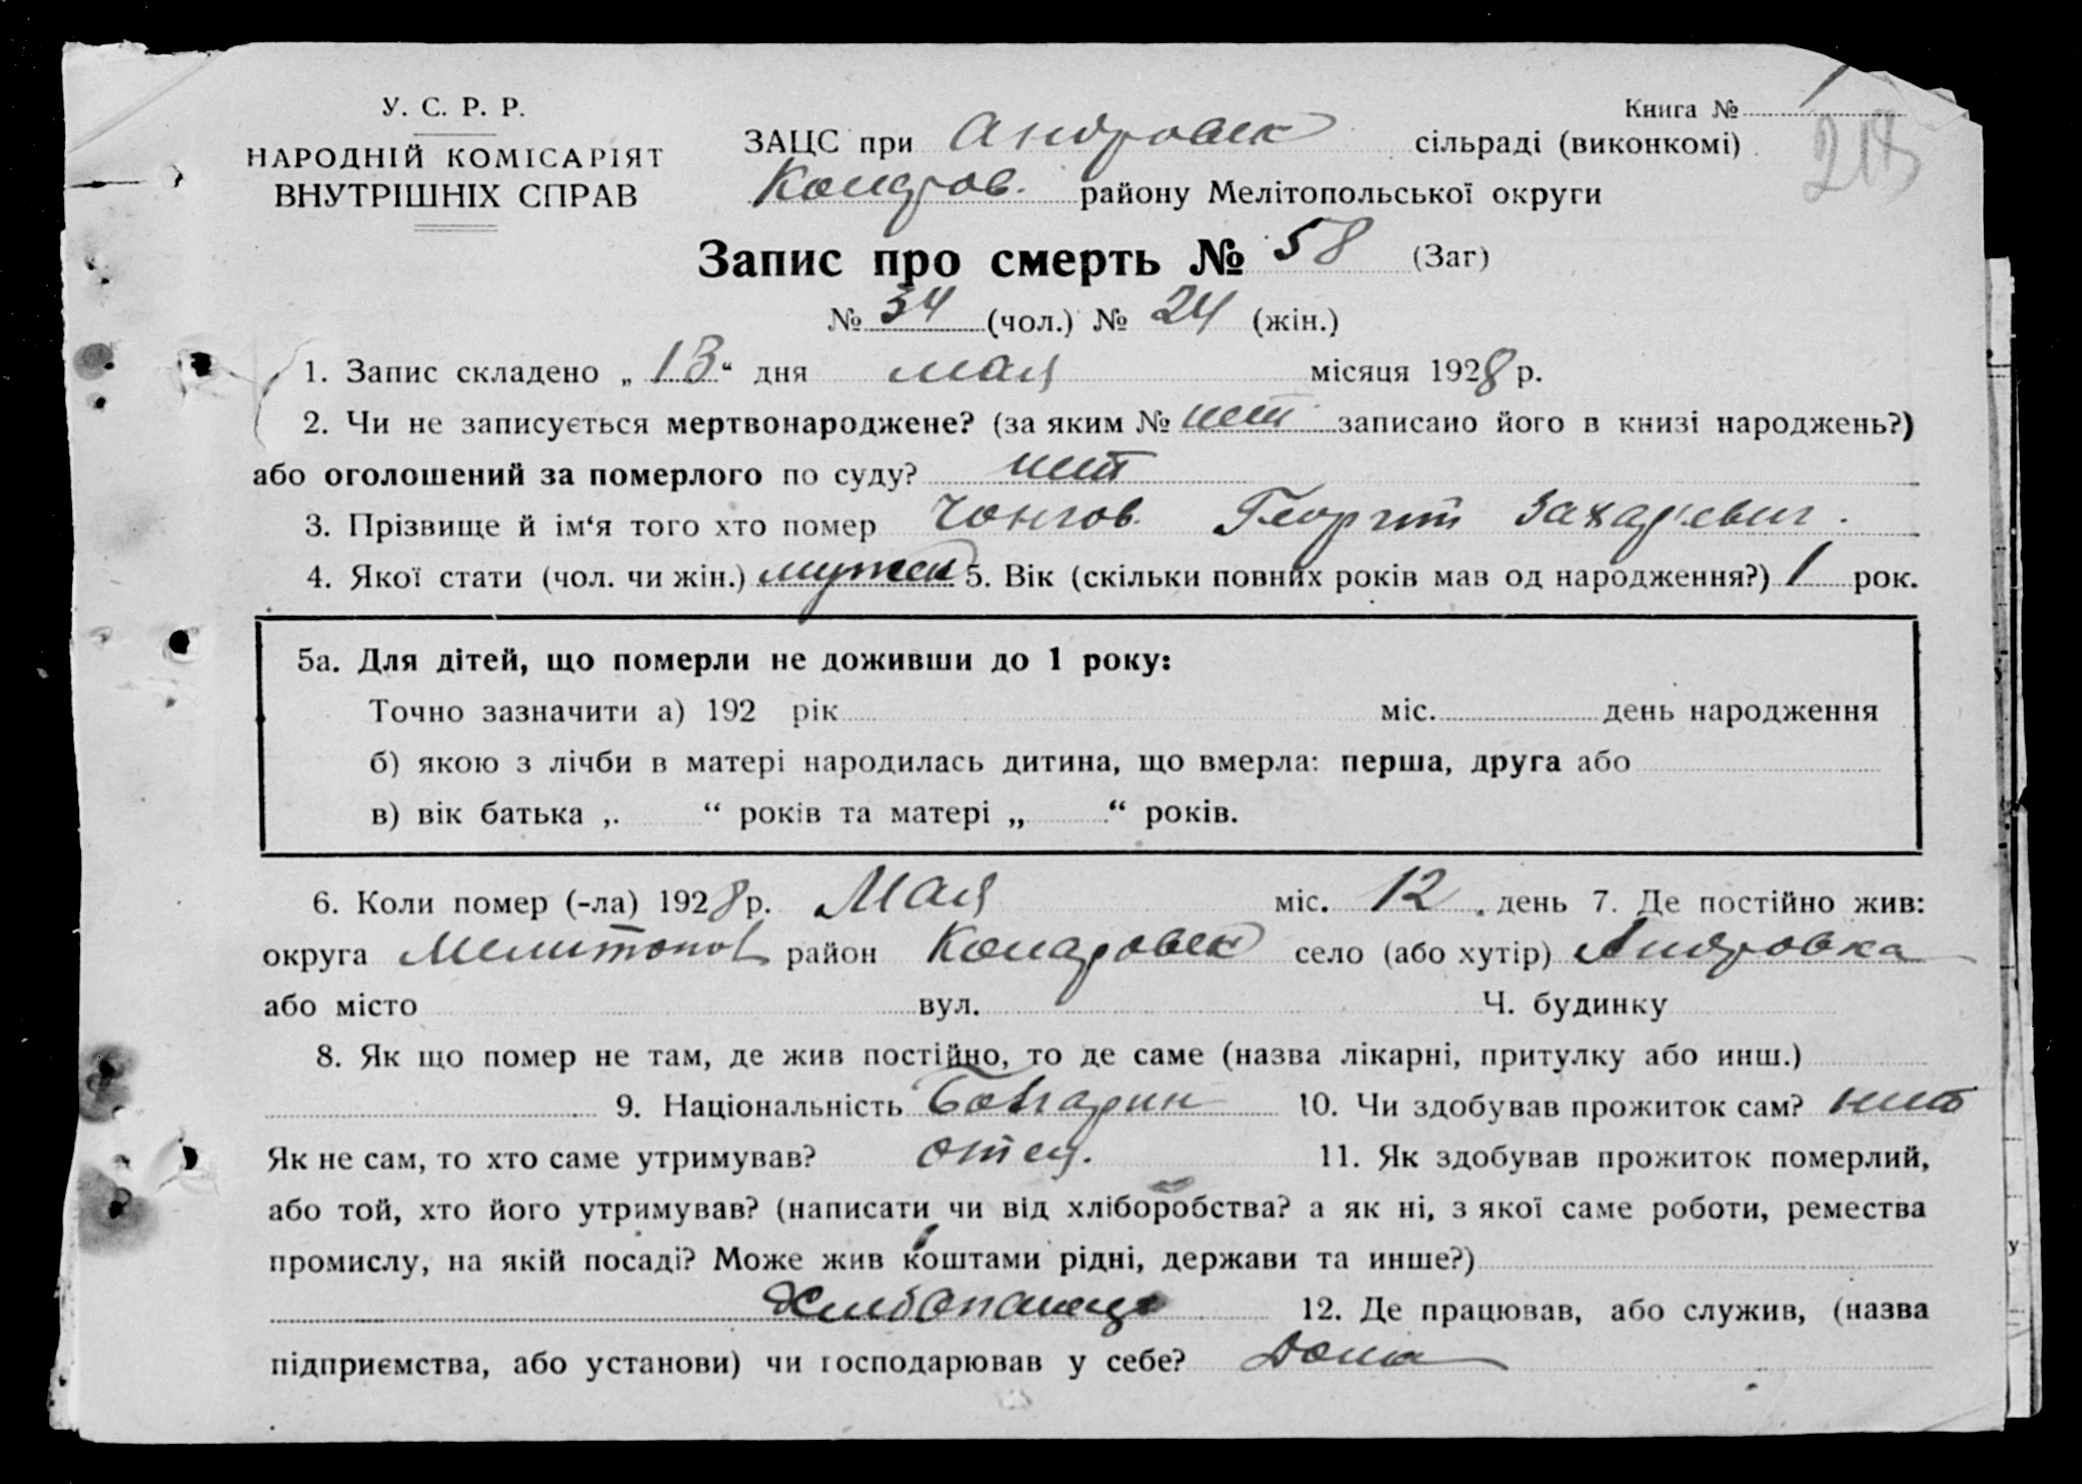 У. С. Р. Р.
НАРОДНІЙ КОМІСАРІЯТ
ВНУТРІШНІХ СПРАВ
Книга № 1
ЗАЦС при Андровск сільраді (виконкомі)
Коларов. району Мелітопольської округи
Запис про смерть № 58 (Заг)
№ 34 (чол.) № 24 (жін.)
1. Запис складено „ 13 “ дня мая місяця 1928 р.
2. Чи не записується мертвонароджене? (за яким № нет записано його в книзі народжень?)
або оголошений за померлого по суду? нет
3. Прізвище й ім‘я того хто помер Чонгов Георгий Захарьевич.
4. Якої стати (чол. чи жін.) мужск 5. Вік (скільки повних років мав од народження?) 1 рок.
5а. Для дітей, що померли не доживши до 1 року:
Точно зазначити а) 192 рік міс. день народження
б) якою з лічби в матері народилась дитина, що вмерла: перша, друга або
в) вік батька „ “ років та матері „ “ років.
6. Коли помер (-ла) 1928 р. Мая міс. 12 день 7. Де постійно жив:
округа Мелитопол район Коларовск село (або хутір) Андровка
або місто вул. Ч. будинку
8. Як що помер не там, де жив постійно, то де саме (назва лікарні, притулку або инш.)
9. Національність Болгарин 10. Чи здобував прожиток сам? нет
Як не сам, то хто саме утримував? отец. 11. Як здобував прожиток померлий,
або той, хто його утримував? (написати чи від хліборобства? а як ні, з якої саме роботи, ремества
промислу, на якій посаді? Може жив коштами рідні, держави та инше?)
Хлебопашец 12. Де працював, або служив, (назва
підприємства, або установи) чи господарював у себе? Дома